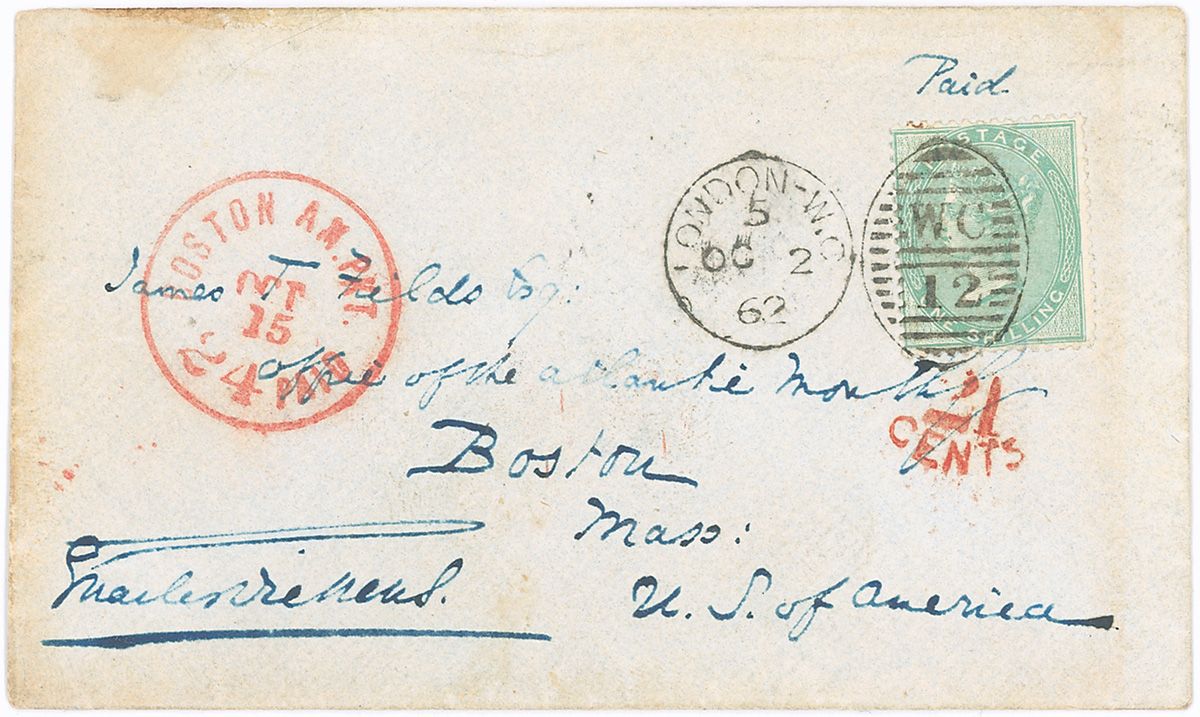 Paid
POSTAGE
ONE SHILLING
WC
12
LONDON-W.C
5
OC 2
62
BOSTON AM. PKT.
OCT
15
24 PAID
James T Fields Esq:
office of the atlantic Monthly
21
CENTS
Boston
Mass:
U. S. of America
Charles Dickens.